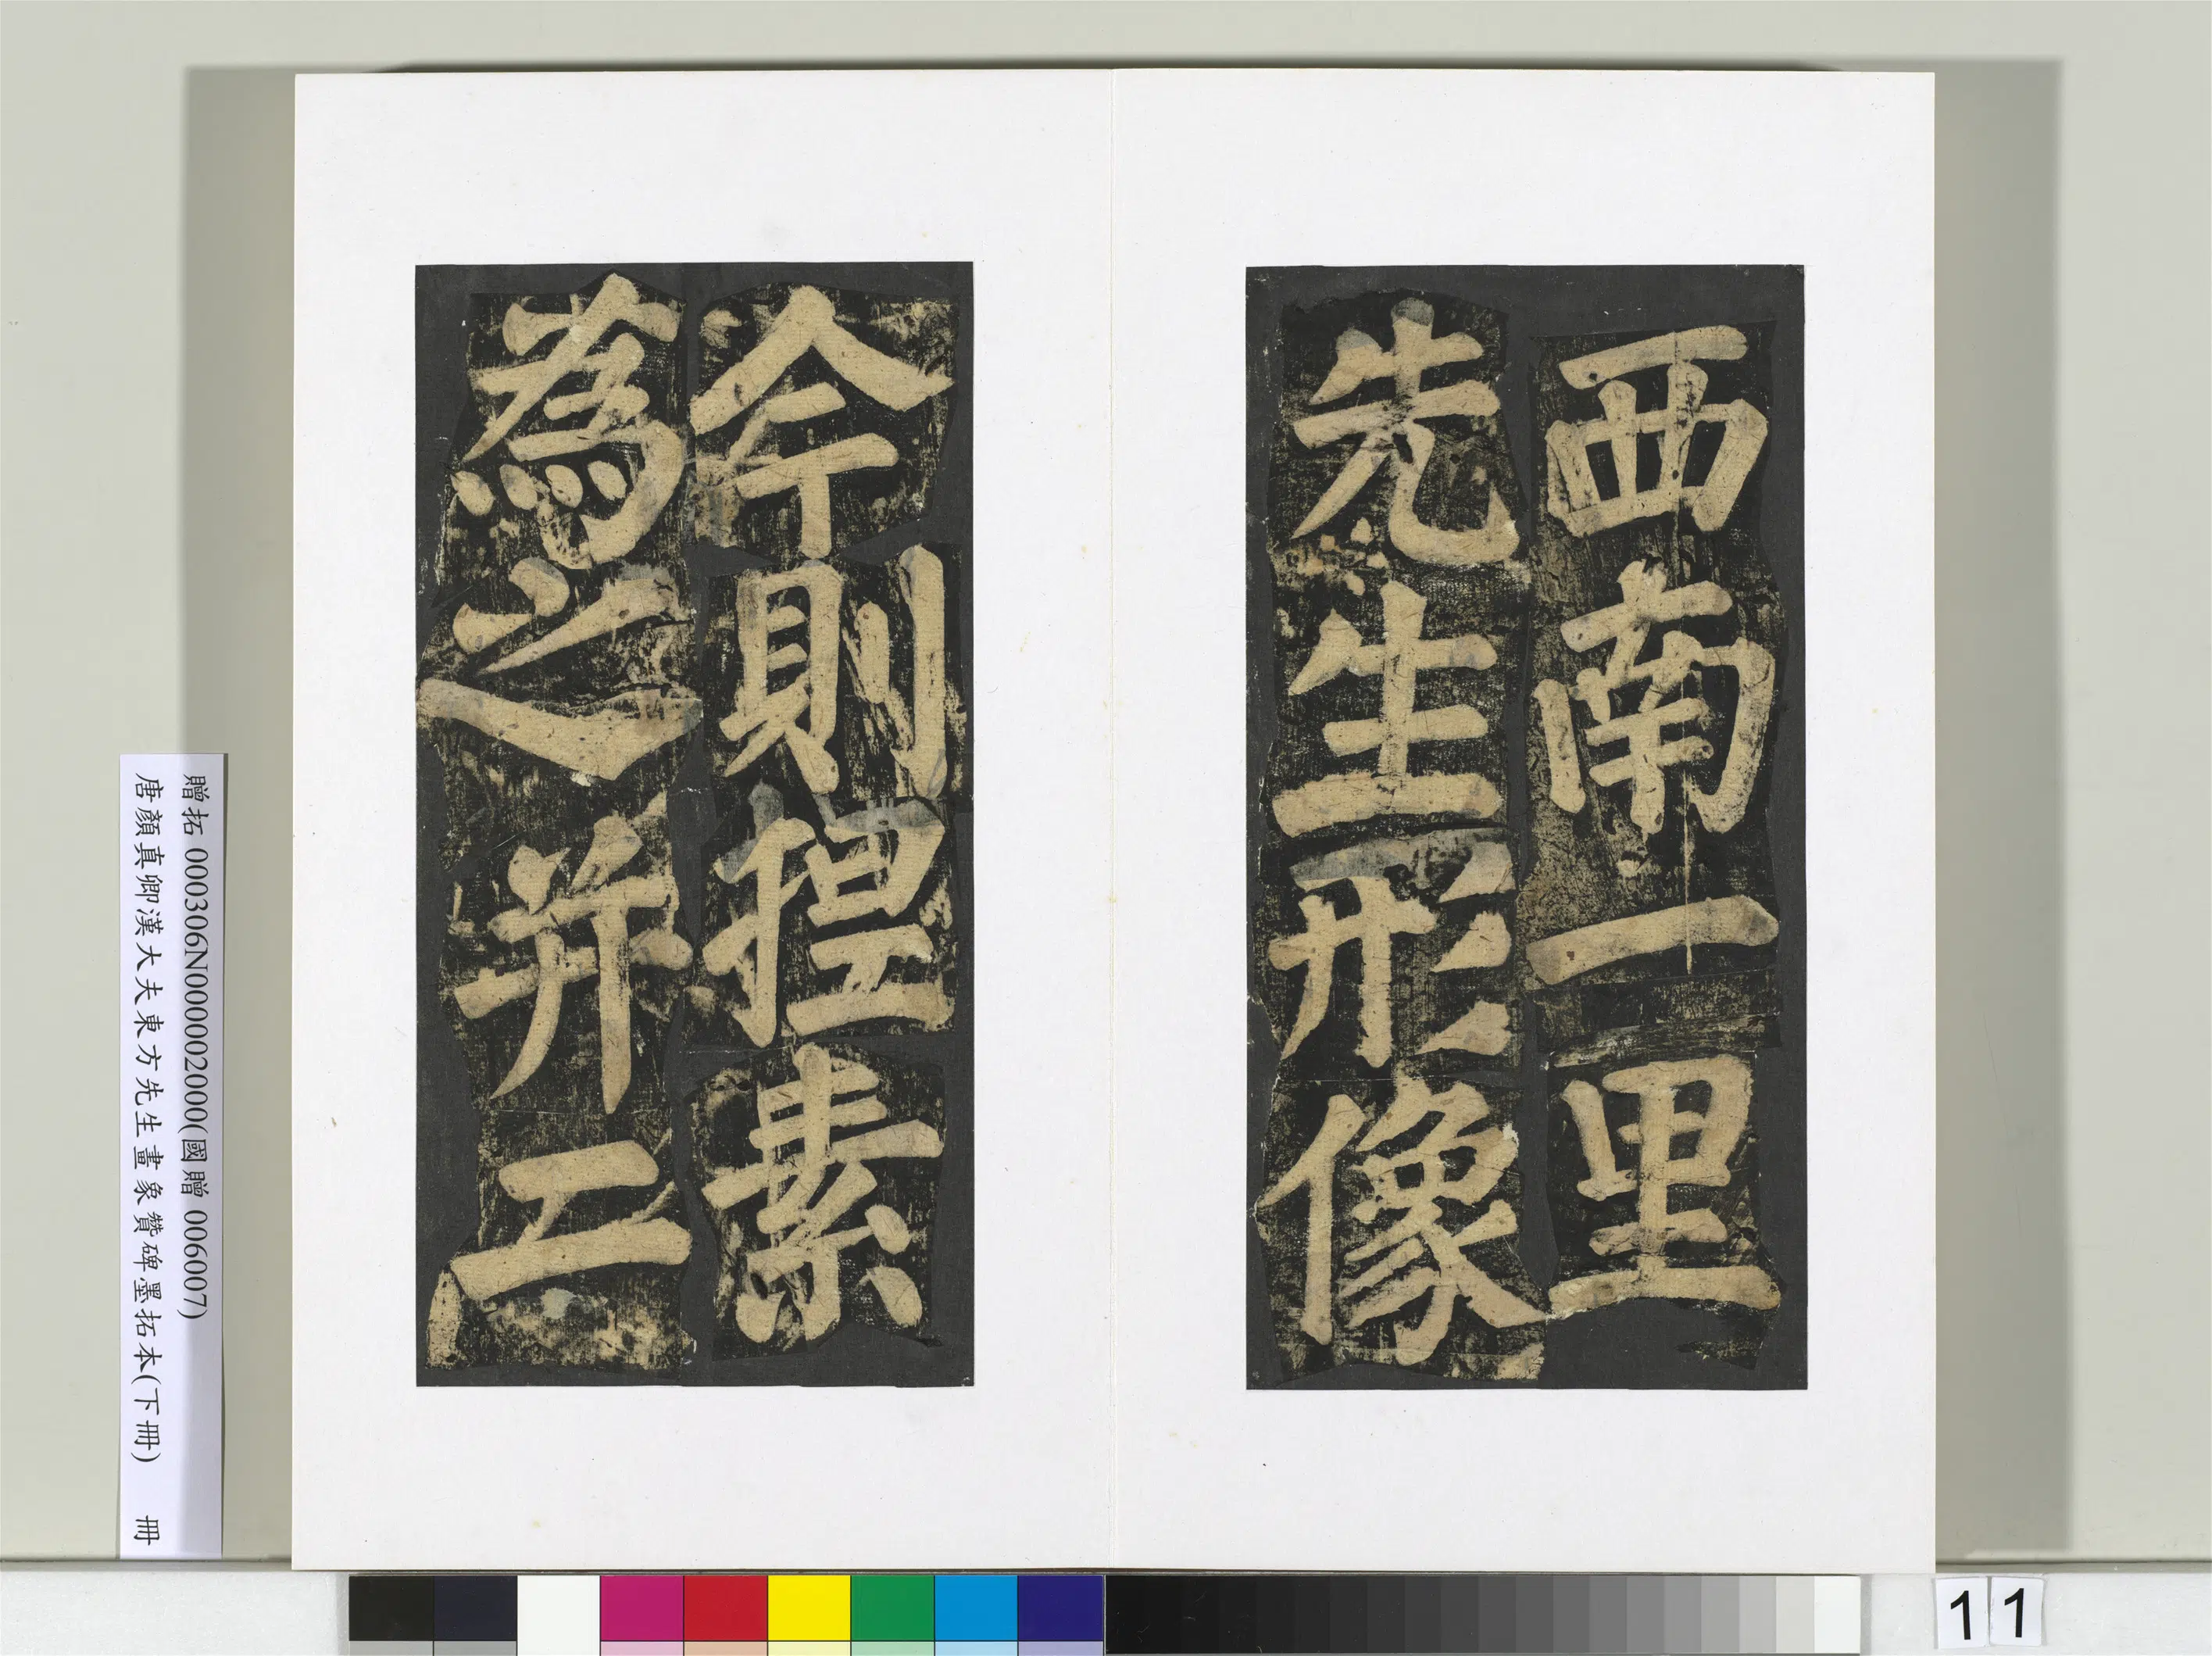 西南一里
先生形像
今則捏素
為之并二
贈拓 000306N000002000(國贈 006007)
唐顏真卿漢大夫東方先生畫象贊碑墨拓本(下冊) 冊
11